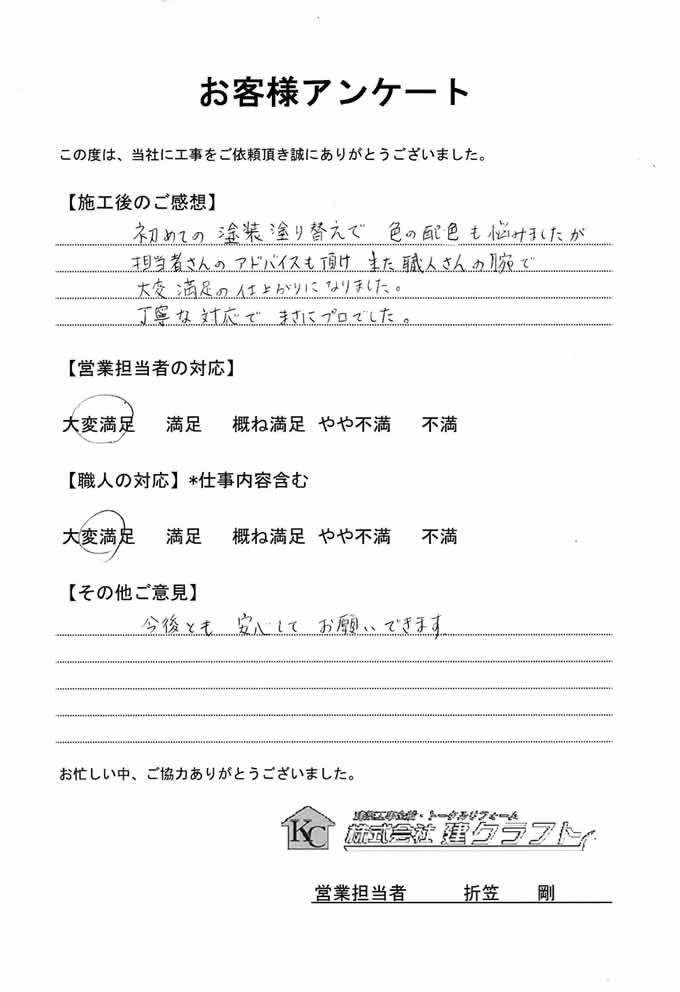 お客様アンケート
この度は、当社に工事をご依頼頂き誠にありがとうございました。
【施工後のご感想】
初めての 塗装塗り替えで 色の配色も悩みましたが
担当者さんのアドバイスも頂け また職人さんの腕で
大変満足の仕上がりになりました。
丁寧な対応で まさにプロでした。
【営業担当者の対応】
大変満足 満足 概ね満足 やや不満 不満
【職人の対応】*仕事内容含む
大変満足 満足 概ね満足 やや不満 不満
【その他ご意見】
今後とも 安心して お願いできます
お忙しい中、ご協力ありがとうございました。
KC
建築工事全般・トータルリフォーム
株式会社 建クラフト
営業担当者 折笠 剛